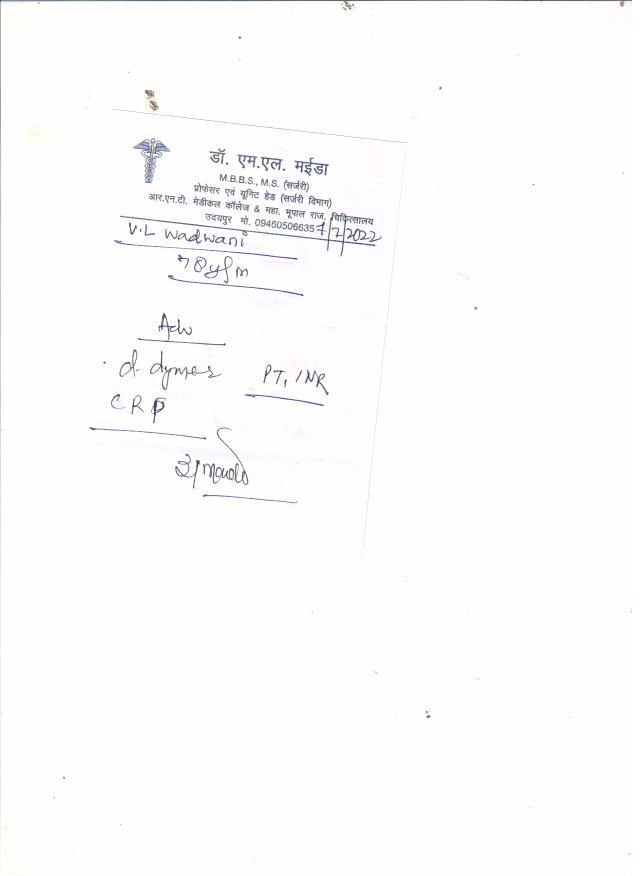 डॉ. एम.एल. मईडा
M.B.B.S., M.S. (सर्जरी)
प्रोफेसर एवं यूनिट हेड (सर्जरी विभाग)
आर.एन.टी. मेडीकल कॉलेज & महा. भूपाल राज. चिकित्सालय
उदयपुर मो. 09460506635 7/7/2022
V.L Wadwani
78y/m
Adv
d-dymer PT, INR
CRP